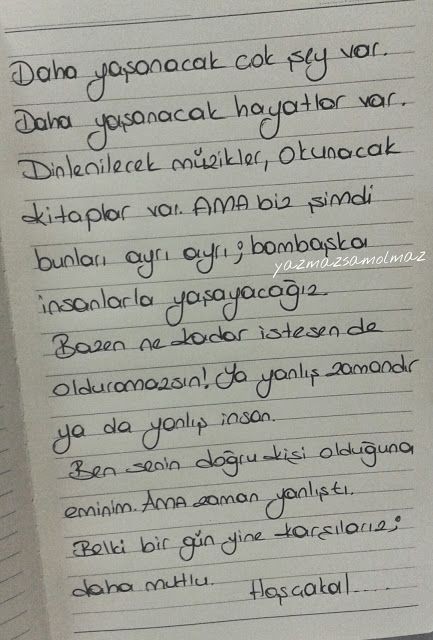 Daha yaşanacak çok şey var.
Daha yaşanacak hayatlar var.
Dinlenilecek müzikler, Okunacak
kitaplar var. AMA biz şimdi
bunları ayrı ayrı; bambaşka
yazmazsamolmaz
insanlarla yaşayacağız
Bazen ne kadar istesen de
olduramazsın! Ya yanlış zamandır
ya da yanlış insan.
Ben senin doğru kişi olduğuna
eminim. AMA zaman yanlıştı.
Belki bir gün yine karşılarız;
daha mutlu. Hoşçakal.....